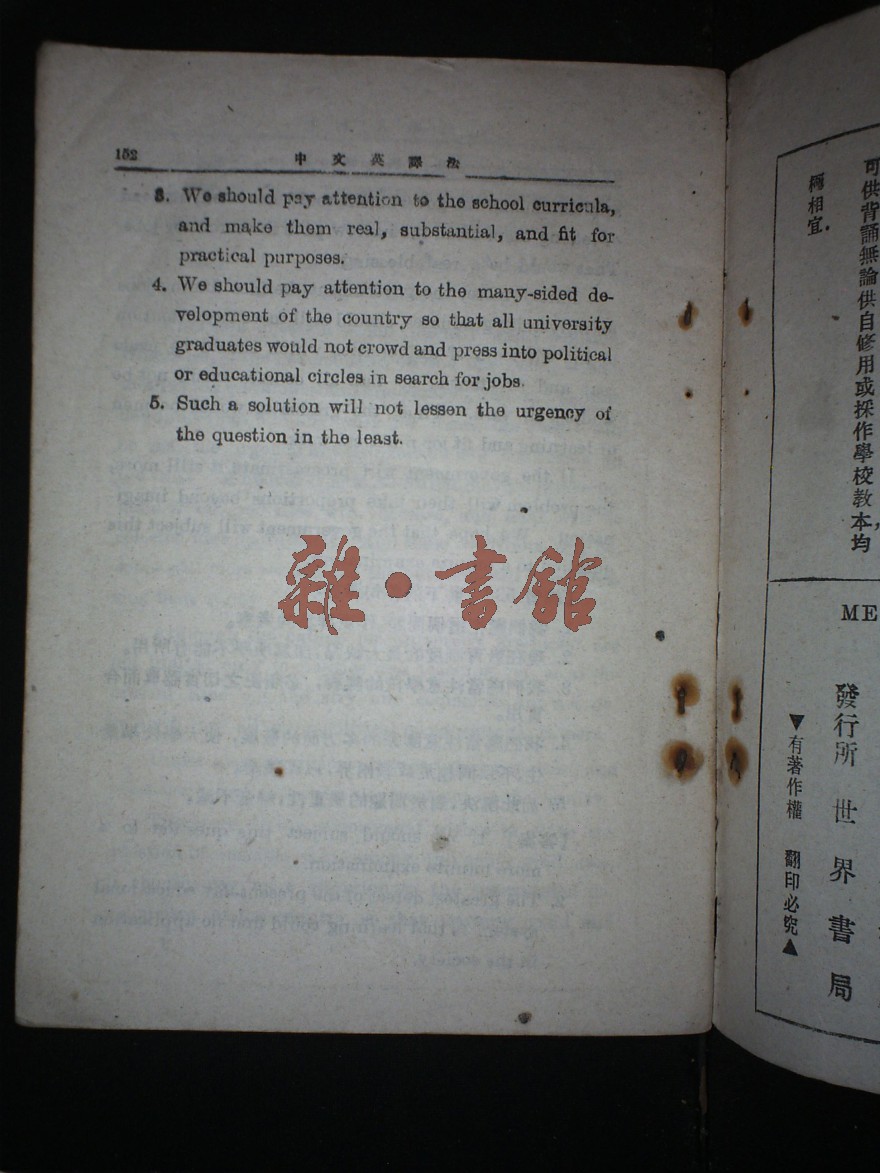 152
中文英譯法
3. We should pay attention to the school curricula,
and make them real, substantial, and fit for
practical purposes.
4. We should pay attention to the many-sided de-
velopment of the country so that all university
graduates would not crowd and press into political
or educational circles in search for jobs.
5. Such a solution will not lessen the urgency of
the question in the least.
雜·書館
可供背誦無論供自修用或採作學校教本,均
極相宜.
ME
發行所 世界書局
▼有著作權 翻印必究▲